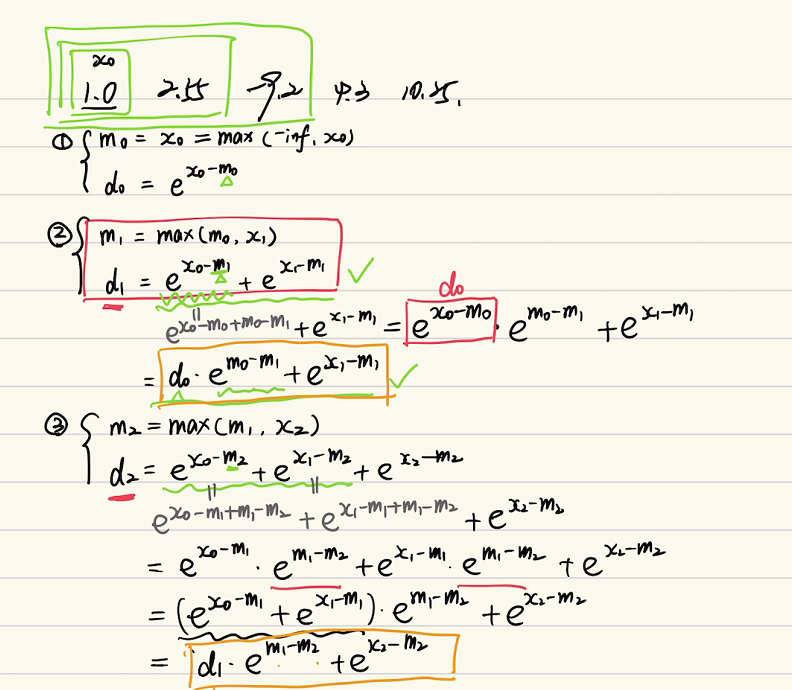 x₀
1.0 2.55 -9.2 4.3 10.25.
① { m₀ = x₀ = max(-inf, x₀)
d₀ = e^{x₀-m₀}
② { m₁ = max(m₀, x₁)
d₁ = e^{x₀-m₁} + e^{x₁-m₁} ✓
d₀
e^{x₀-m₀+m₀-m₁} + e^{x₁-m₁} = e^{x₀-m₀} · e^{m₀-m₁} + e^{x₁-m₁}
= d₀ · e^{m₀-m₁} + e^{x₁-m₁} ✓
③ { m₂ = max(m₁, x₂)
d₂ = e^{x₀-m₂} + e^{x₁-m₂} + e^{x₂-m₂}
e^{x₀-m₁+m₁-m₂} + e^{x₁-m₁+m₁-m₂} + e^{x₂-m₂}
= e^{x₀-m₁} · e^{m₁-m₂} + e^{x₁-m₁} · e^{m₁-m₂} + e^{x₂-m₂}
= (e^{x₀-m₁} + e^{x₁-m₁}) · e^{m₁-m₂} + e^{x₂-m₂}
= d₁ · e^{m₁-m₂} + e^{x₂-m₂}